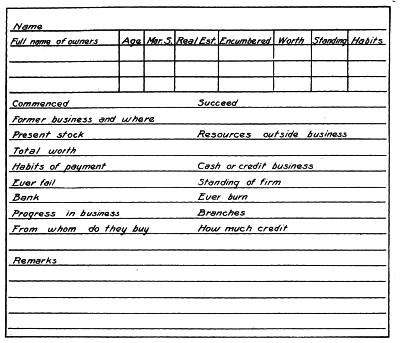 Name
Full name of owners Age Mar. S. Real Est. Encumbered Worth Standing Habits
Commenced Succeed
Former business and where
Present stock Resources outside business
Total worth
Habits of payment Cash or credit business
Ever fail Standing of firm
Bank Ever burn
Progress in business Branches
From whom do they buy How much credit
Remarks